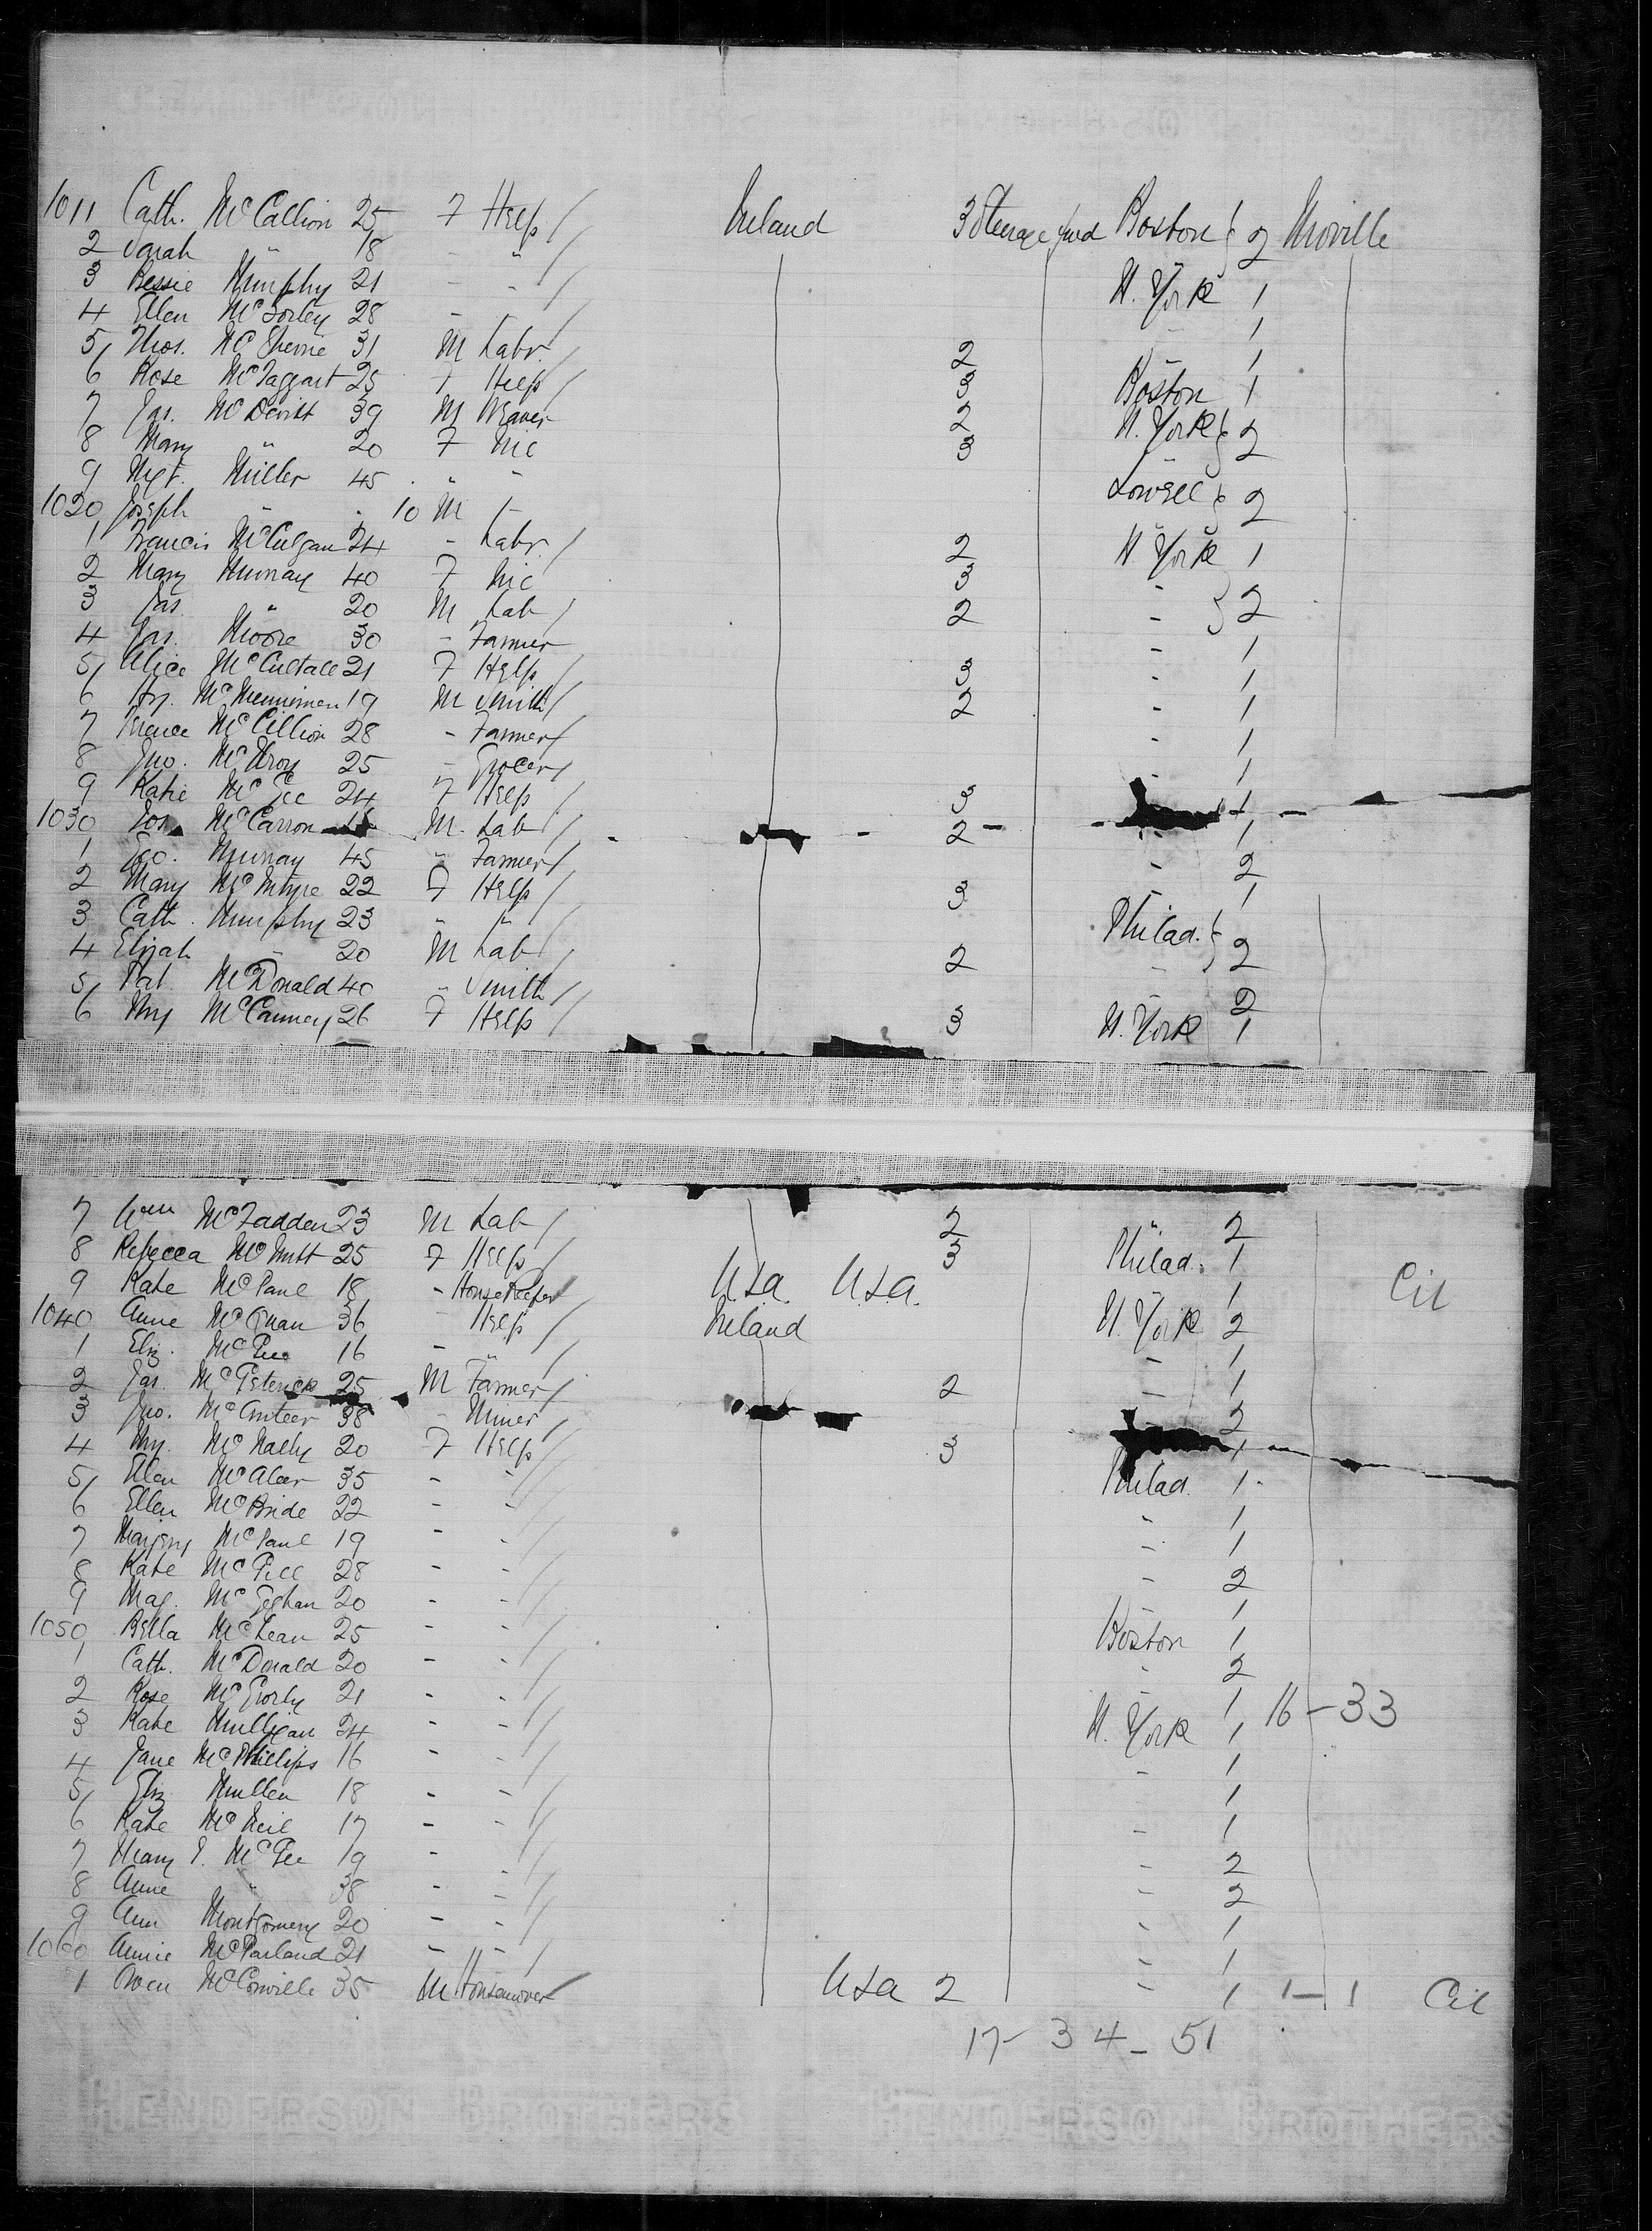 1011 Cath. McCallion 25 F Help / Ireland 3 Steerage fwd Boston } 2 Moville
2 Sarah " 18 - " /
3 Bessie Humphy 21 - - / N. York 1
4 Ellen McSorley 28 - - / - 1
5 Thos. McSherrie 31 M Labr. / 2 - 1
6 Rose McTaggart 25 F Help / 3 Boston 1
7 Jas. McDevitt 39 M Weaver 2 N. York } 2
8 Mary " 20 F Nie 3
9 Mgt. Miller 45 " " Lowell } 2
1020 Joseph - 10 M -
1 Francis McCulgan 24 - Labr. / 2 N York 1
2 Mary Murray 40 F Nie 3 - } 2
3 Jas " 20 M Lab / 2 -
4 Jas. Moore 30 - Farmer - 1
5 Alice McCultall 21 F Help / 3 - 1
6 Hy. McMenniman 19 M Smith / 2 - 1
7 McCillion 28 - Farmer / - 1
8 Jno. McElroy 25 - Grocer / - 1
9 Katie McGee 24 F Help / 3 1
1030 Jos McCarron M. Lab / 2 - 1
1 Geo. Murray 45 " Farmer / - 2
2 Mary McIntyre 22 F Help / 3 - 1
3 Cath. Humphy 23 " " / Philad. } 2
4 Elijah - 20 M Lab / 2 -
5 Pat. McDonald 40 " Smith / 2
6 My McCanney 26 F Help / 3 N. York 1
7 Wm McFadden 23 M Lab / 2 " 2
8 Rebecca McNutt 25 F Help / 3 Philad. 1
9 Kate McPaul 18 - HouseKeeper U.S.a. U.S.a. - 1 Cit
1040 Anne McQuan 36 Help / Ireland N. York 2
1 Eliz. McGee 16 - " / - 1
2 Jas. McGeterick 25 M Farmer / 2 - 1
3 Jno. McAnteer 38 - Miner / - 2
4 My. McNally 20 F Help / 3 1
5 McAleer 35 - - / Philad. 1
6 Ellen McBride 22 - - / - 1
7 Margery McPaul 19 - - / - 1
8 Kate McGill 28 - - / - 2
9 Mag. McGeghan 20 - - / 1
1050 Bella McLean 25 - - / Boston 1
1 Cath. McDonald 20 - - / - 2
2 Rose McGrorly 21 - - / 1 16 - 33
3 Kate Mulligan 24 - - / N. York 1
4 Jane McPhillips 16 - - / - 1
5 Eliz Mullen 18 - - / 1
6 Kate McNeil 17 - - / - 1
7 Mary J. McGee 19 - - / - 2
8 Anne " 38 - - / - 2
9 Ann Montgomery 20 - - / - 1
1060 Annie McParland 21 - - / - 1
1 Owen McConville 35 M Housemover USa 2 - 1 1 - 1 Cit
17 - 34 - 51
HENDERSON BROTHERS HENDERSON BROTHERS